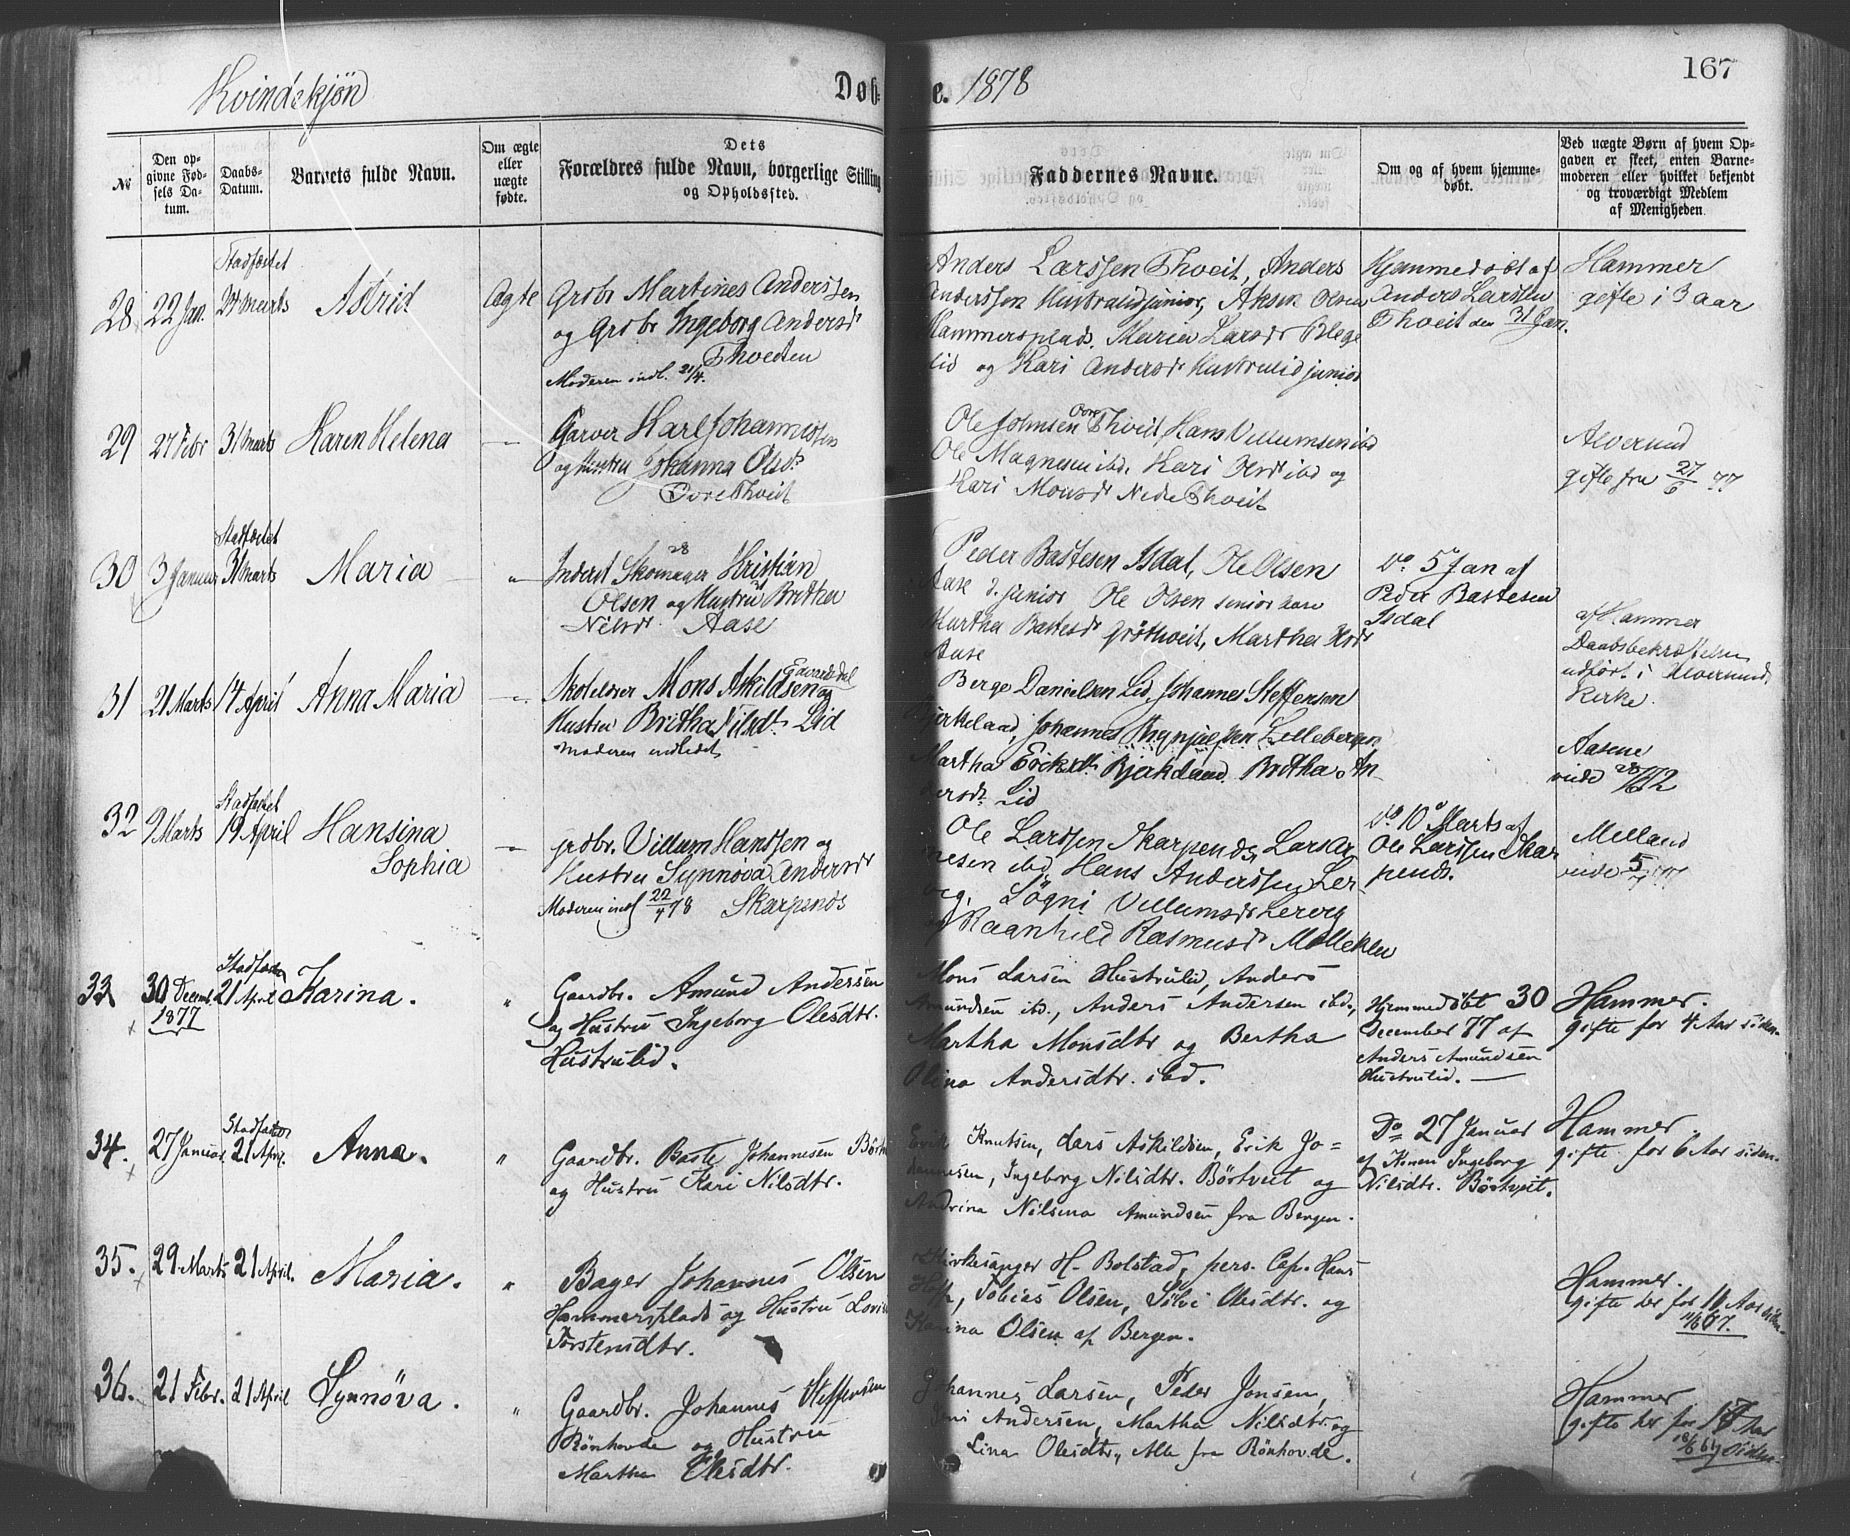 167
Kvindekjön
Døb
e. 1878
№
Den op-
givne Fød-
sels Da-
tum.
Daabs-
Datum.
Barnets fulde Navn.
Om ægte
eller
uægte
fødte.
Dets
Forældres fulde Navn, borgerlige Stilling
og Opholdssted.
Faddernes Navne.
Om og af hvem hjemme-
døbt.
Ved uægte Børn af hvem Op-
gaven er skeet, enten Barne-
moderen eller hvilket bekjendt
og troværdigt Medlem
af Menigheden.
28
22 Jan.
Stadfæstet
24 Marts
Astrid
Ægte
Grbr Martines Anderssen
og Grbr Ingeborg Andersdr
Thveiten
Moderen indl. 21/4.
Anders Larssen Thveit, Anders
Anderssen Hustrulid junior, Aksen Olsen
Hammersplads. Maria Larsdr Blege
lid og Kari Andersdr Hustrulid junior
Hjemmedøbt af
Anders Larssen
Thveit den 31 Jan.
Hammer
gifte i 3 aar
29
27 Febr
31 Marts
Karen Helena
Garver Karl Johannessen
og Hustru Johanna Olsdr
Øvre Thveit
Ole Johnsen Øvre Thveit, Hans Villumsen ibd
Ole Magnesen ibd. Kari Olsdr ibd og
Kari Monsdr Nedre Thveit
Alversund
gifte fra 27/6 77
30
3 Januar
Stadfæstet
31 Marts
Maria
Inderst Skomager Kristian
Olsen og Hustru Britha
Nilsdr. Aase
Peder Bastesen Isdal, Ole Olsen
Aase d. junior Ole Olsen senior Aase
Martha Bastesdr Grøthveit, Martha
Aase
Do 5 Jan af
Peder Bastesen
Isdal
af Hammer
Daabsbekræftelsen
udført i Alversund
Kirke.
31
21 Marts
14 April
Anna Maria
Skolelærer Mons Askildsen og
Hustru Britha Nilsdr Lid
Moderen indledet
Berge Danielsen Lid, Johannes Steffensen
Bjerkeland, Johannes Brynjulfsen Lilleberge
Martha Eriksdr Bjerkeland. Britha An
dersdr Lid
Aasene
viede
32
9 Marts
Stadfæstet
19 April
Hansina
Sophia
grdbr. Villum Hanssen og
Hustru Synnøva Andersdr
Moderen indl 22/4 78 Skarpenæs
Ole Larssen Skarpenæs, Lars Ar
nesen ibd, Hans Anderssen Ler
vig, Søgni Villumsdr Lervig
og Raanhild Rasmusdr Mølleklev
Do 10 Marts af
Ole Larssen Skar
penæs.
Melland
viede
33
30 Decemb.
1877
Stadfæstet
21 April
Karina.
"
Gaardbr. Amund Andersen
og Hustru Ingeborg Olesdtr.
Hustrulid.
Mons Larsen Hustrulid, Anders
Amundsen ibd., Anders Andersen ibd.,
Martha Monsdtr og Bertha
Olina Andersdtr. ibd.
Hjemmedøbt 30
December 77 af
Anders Amundsen
Hustrulid.
Hammer.
gifte for 4 Aar siden
34.
27 Januar
Stadfæstet
21 April.
Anna.
"
Gaardbr. Baste Johannesen Börtv
og Hustru Kari Nilsdtr.
Erik Knutsen, Lars Askildsen, Erik Jo-
hannesen, Ingeborg Nilsdtr. Börtveit og
Andrina Nilsena Amundsen fra Bergen.
Do 27 Januar
af Konen Ingeborg
Nilsdtr. Börtveit.
Hammer.
gifte for 6 Aar siden.
35.
29 Marts
21 April.
Maria.
"
Bager Johannes Olsen
Hammersplads og Hustru
Torstensdtr.
Kirkesanger H. Bolstad, pers. Cap. Hans
Hoff, Tobias Olsen, Silvi Olesdtr. og
Karina Olsen af Bergen.
Hammer.
gifte her for 10 Aar siden
11/6 67.
36.
21 Febr.
21 April
Synnöva.
"
Gaardbr. Johannes Steffensen
Rönhovde og Hustru
Martha Olesdtr.
Johannes Larsen, Peder Jonsen,
Andersen, Martha Nilsdtr. og
Lina Olesdtr., Alle fra Rönhovde.
Hammer
gifte her for Aar
siden